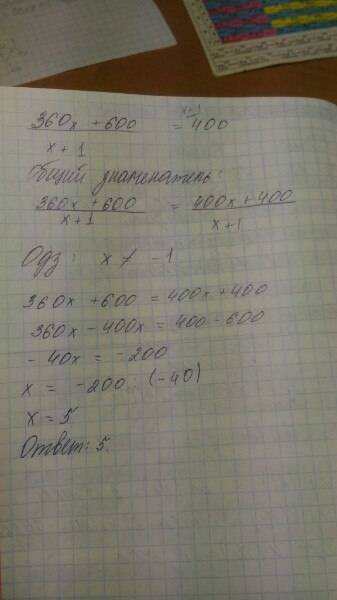 360x + 600 / x + 1 = 400 x+1
Общий знаменатель:
360x + 600 / x + 1 = 400x + 400 / x + 1
Одз: x ≠ -1
360x + 600 = 400x + 400
360x - 400x = 400 - 600
- 40x = -200
x = -200 : (-40)
x = 5
Ответ: 5.